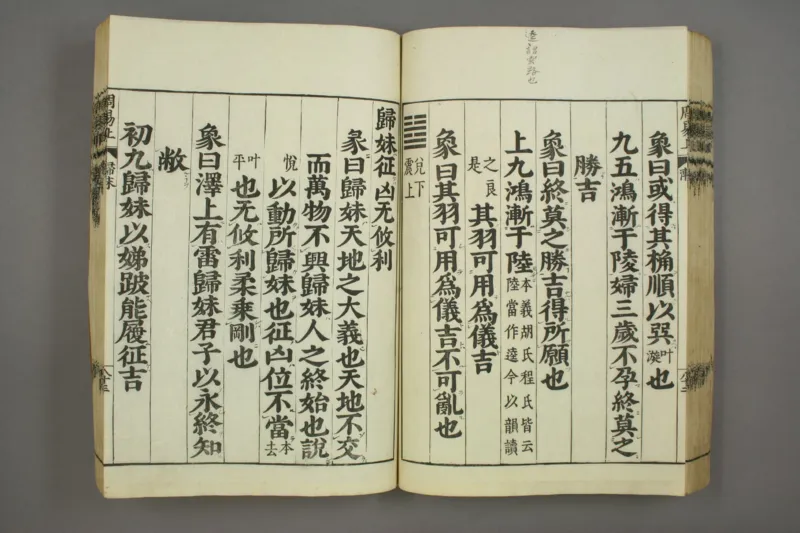 逵謂雲路也
象曰或得其桷順以巽叶漢也
九五鴻漸于陵婦三歲不孕終莫之
勝吉
象曰終莫之勝吉得所願也
上九鴻漸于陸本義胡氏程氏皆云陸當作逵今以韻讀
之良是其羽可用爲儀吉
象曰其羽可用爲儀吉不可亂也
䷵兌下震上
歸妹征凶无攸利
彖曰歸妹天地之大義也天地不交
而萬物不興歸妹人之終始也說
悅以動所歸妹也征凶位不當本去
叶平也无攸利柔乘剛也
象曰澤上有雷歸妹君子以永終知
敝
初九歸妹以娣跛能履征吉
周易上
歸妹